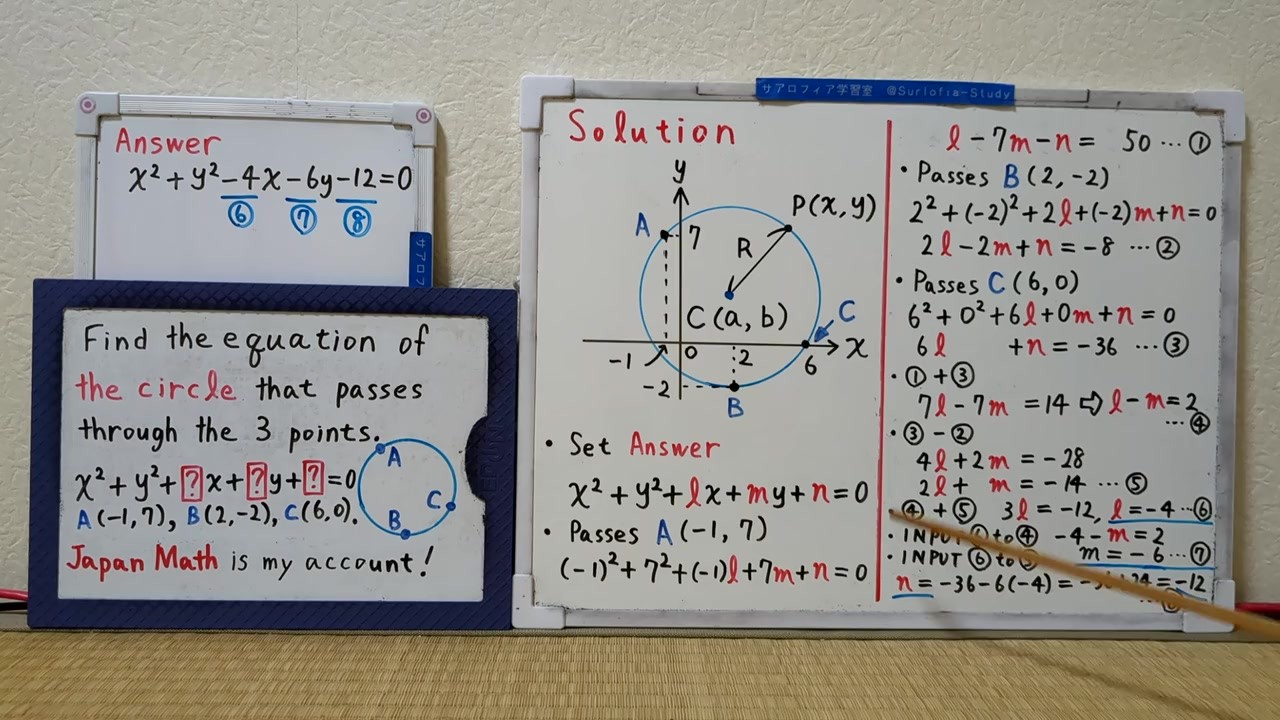 サアロフィア学習室 @Surlofia-Study
Answer
x²+y²-4x-6y-12=0
⑥ ⑦ ⑧
サアロフ
Find the equation of
the circle that passes
through the 3 points.
x²+y²+?x+?y+?=0
A(-1,7), B(2,-2), C(6,0).
A
C
B
Japan Math is my account!
Solution
y
P(x,y)
A
7
R
C(a,b)
C
-1
0
2
6
x
-2
B
• Set Answer
x²+y²+lx+my+n=0
• Passes A(-1,7)
(-1)²+7²+(-1)l+7m+n=0
l-7m-n= 50 … ①
• Passes B(2,-2)
2²+(-2)²+2l+(-2)m+n=0
2l-2m+n=-8 … ②
• Passes C(6,0)
6²+0²+6l+0m+n=0
6l +n=-36 … ③
• ①+③
7l-7m =14 ⇨ l-m=2
… ④
• ③-②
4l+2m =-28
2l+ m =-14 … ⑤
④+⑤ 3l=-12, l=-4 … ⑥
• INPUT to ④ -4-m=2
• INPUT ⑥ to m=-6 … ⑦
n=-36-6(-4)= =-12